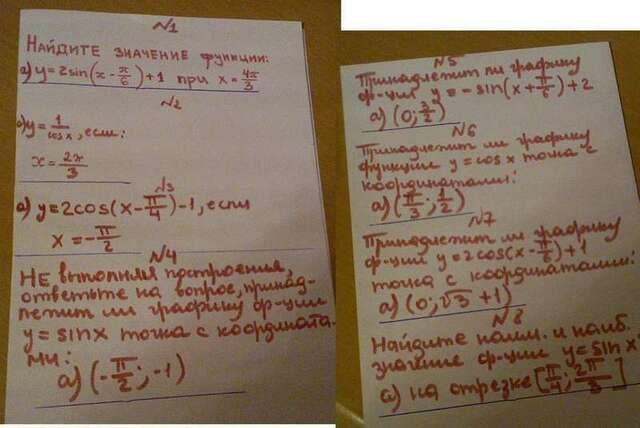 №1
Найдите значение функции:
а) y=2sin(x-π/6)+1 при x=4π/3
№2
а) y=1/cosx, если:
x=2π/3
№3
а) y=2cos(x-π/4)-1, если
x=-π/2
№4
Не выполняя построения,
ответьте на вопрос, принад-
лежит ли графику ф-ции
y=sinx точка с координата-
ми:
а) (-π/2; -1)
№5
Принадлежит ли графику
ф-ции y=-sin(x+π/6)+2
а) (0; 3/2)
№6
Принадлежит ли графику
функции y=cosx точка с
координатами:
а) (π/3; 1/2)
№7
Принадлежит ли графику
ф-ции y=2cos(x-π/6)+1
точка с координатами:
а) (0; √3+1)
№8
Найдите наим. и наиб.
значение ф-ции y=sinx
а) на отрезке [π/4; 2π/3]